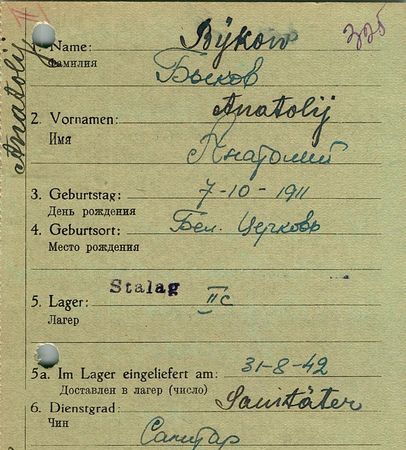 Anatolij
1. Name: Bykow 335
Фамилия Быков
2. Vornamen: Anatolij
Имя Анатолий
3. Geburtstag: 7-10-1911
День рождения
4. Geburtsort: Бел. Церковь
Место рождения
5. Lager: Stalag IIc
Лагер
5a. Im Lager eingeliefert am: 31-8-42
Доставлен в лагер (число)
6. Dienstgrad: Sanitäter
Чин Санитар